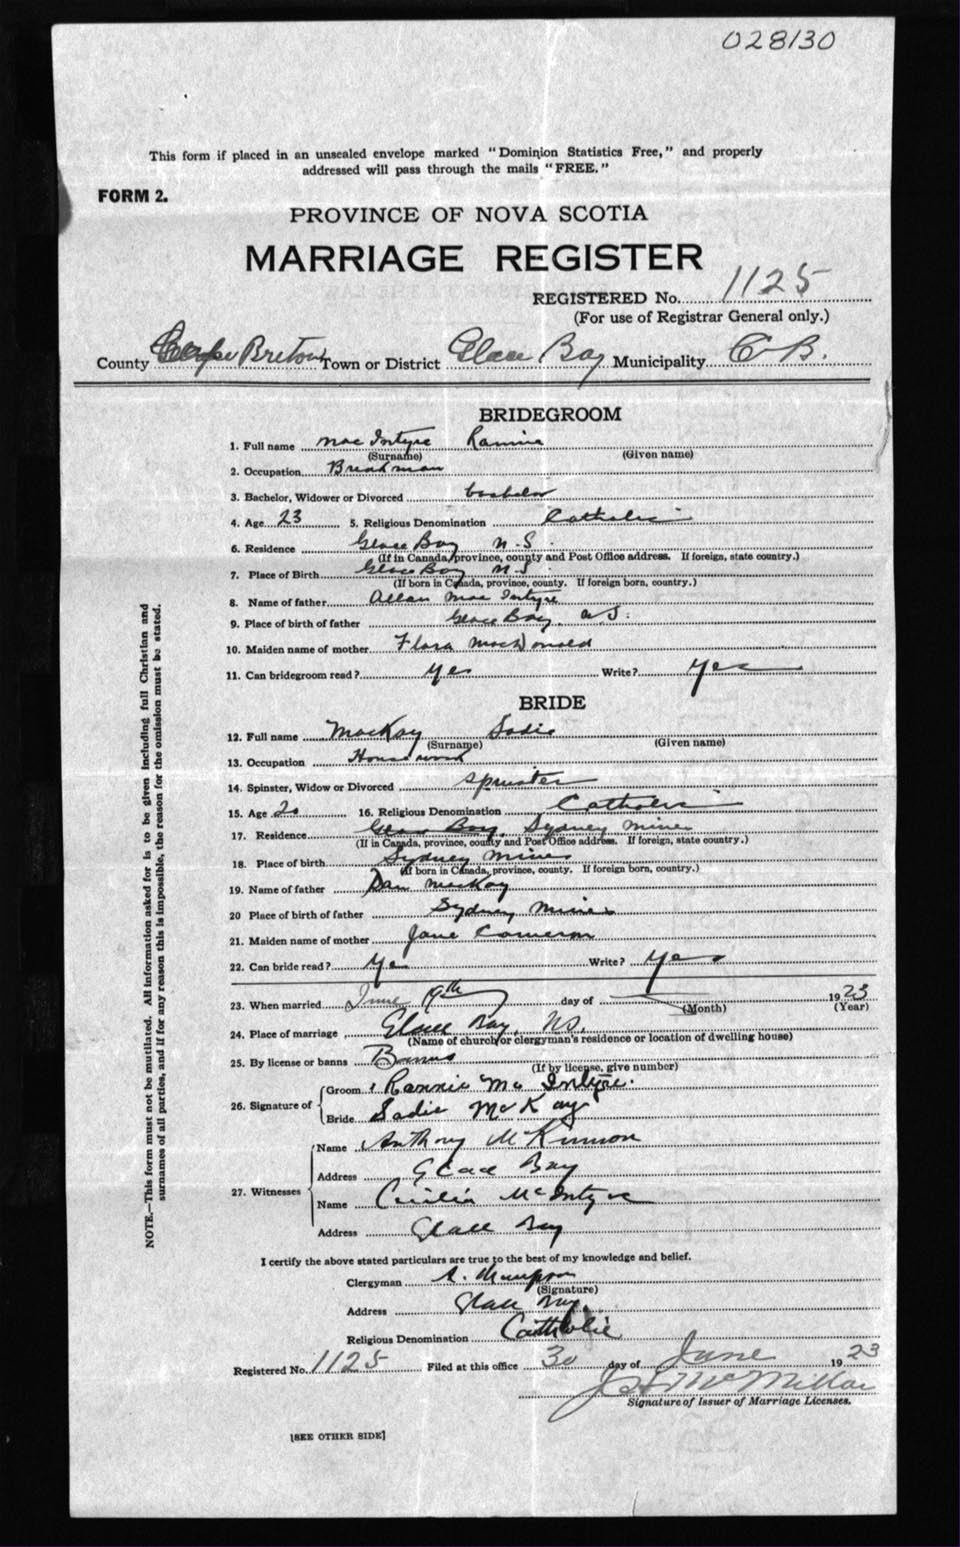 028130
This form if placed in an unsealed envelope marked "Dominion Statistics Free," and properly
addressed will pass through the mails "FREE."
FORM 2.
PROVINCE OF NOVA SCOTIA
MARRIAGE REGISTER
REGISTERED No. 1125
(For use of Registrar General only.)
County Cape Breton Town or District Glace Bay Municipality C B.
BRIDEGROOM
1. Full name Mac Intyre Rannie
(Surname) (Given name)
2. Occupation Breakman
3. Bachelor, Widower or Divorced bachelor
4. Age 23 5. Religious Denomination Catholic
6. Residence Glace Bay N.S
(If in Canada, province, county and Post Office address. If foreign, state country.)
7. Place of Birth Glace Bay N.S
(If born in Canada, province, county. If foreign born, country.)
8. Name of father Allan Mac Intyre
9. Place of birth of father Glace Bay
10. Maiden name of mother Flora MacDonald
11. Can bridegroom read? yes Write? yes
BRIDE
12. Full name MacKay Sadie
(Surname) (Given name)
13. Occupation Housework
14. Spinster, Widow or Divorced spinster
15. Age 20 16. Religious Denomination Catholic
17. Residence Glace Bay, Sydney Mines
(If in Canada, province, county and Post Office address. If foreign, state country.)
18. Place of birth Sydney Mines
(If born in Canada, province, county. If foreign born, country.)
19. Name of father Dan MacKay
20 Place of birth of father Sydney Mines
21. Maiden name of mother Jane Cameron
22. Can bride read? Yes Write? Yes
23. When married June 19th day of 1923
(Month) (Year)
24. Place of marriage Glace Bay, NS.
(Name of church or clergyman's residence or location of dwelling house)
25. By license or banns Banns
(If by license, give number)
26. Signature of
Groom Rannie Mc Intyre.
Bride Sadie McKay
27. Witnesses
Name Anthony McKinnon
Address Glace Bay
Name Cecilia McIntyre
Address Glace Bay
I certify the above stated particulars are true to the best of my knowledge and belief.
Clergyman A.
(Signature)
Address Glace Bay
Religious Denomination Catholic
Registered No. 1125 Filed at this office 30 day of June 1923
McMillan
Signature of Issuer of Marriage Licenses.
[SEE OTHER SIDE]
NOTE.—This form must not be mutilated. All information asked for is to be given including full Christian and
surnames of all parties, and if for any reason this is impossible, the reason for the omission must be stated.